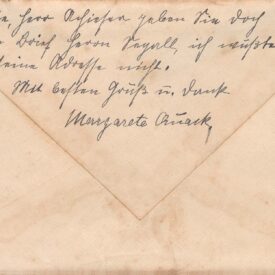 Herr Schieser geben Sie doch
Brief Herrn Segall, ich wußte
seine Adresse nicht.
Mit besten Gruß u. Dank
Margarete Quack,